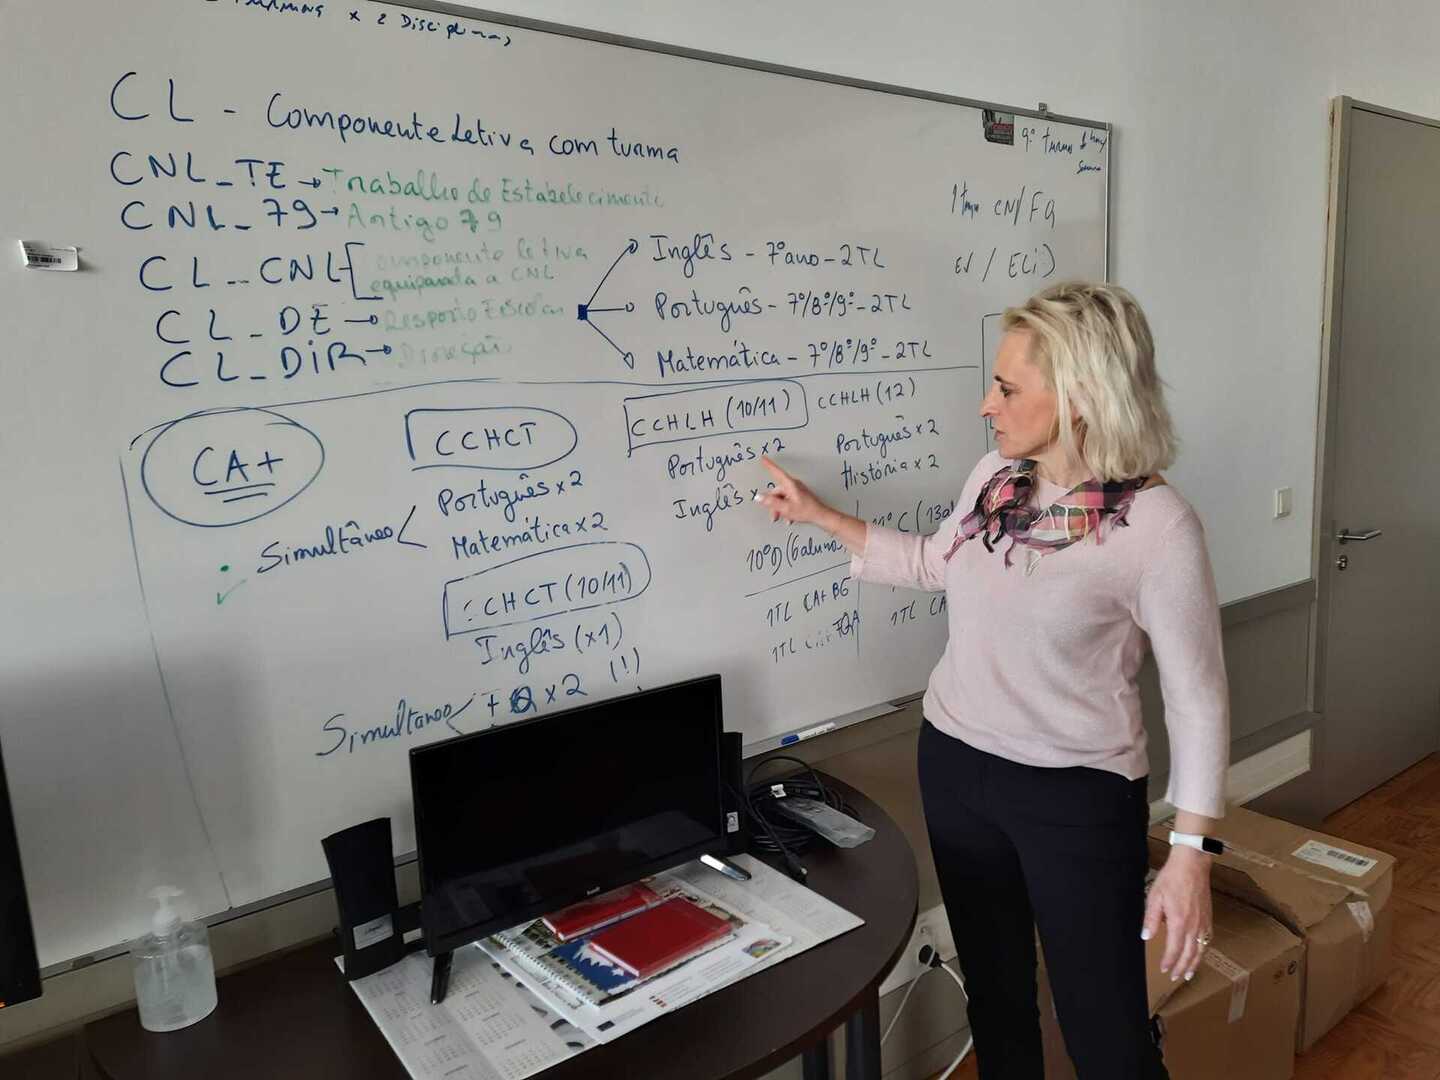 x 2 Disciplinas
CL - Componente Letiva com turma
CNL_TE → Trabalho de Estabelecimento
CNL_79 → Artigo 79
CL_CNL componente letiva
equiparada a CNL
CL_DE → Desporto Escolar
CL_DIR → Direcção
Inglês - 7º ano - 2TL
Português - 7º/8º/9º - 2TL
Matemática - 7º/8º/9º - 2TL
9º turma
1 turma CN/FQ
EV / ECiD
CA+
Simultâneo
CCHCT
Português x2
Matemática x2
CHCT (10/11)
Inglês (x1)
Simultaneo
+ x 2 (!)
CCHLH (10/11)
Português x2
Inglês x
CCHLH (12)
Português x2
História x2
10ºD (6 aluno
1TL CA+ BG
1TL FQA
11ºC (13al
1TL CA